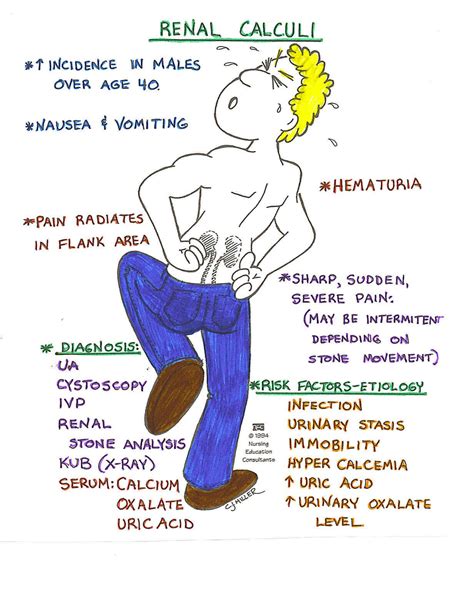 RENAL CALCULI
*↑ INCIDENCE IN MALES
OVER AGE 40.
*NAUSEA & VOMITING
*HEMATURIA
*PAIN RADIATES
IN FLANK AREA
*SHARP, SUDDEN,
SEVERE PAIN:
(MAY BE INTERMITENT
DEPENDING ON
STONE MOVEMENT)
* DIAGNOSIS:
UA
CYSTOSCOPY
IVP
RENAL
STONE ANALYSIS
KUB (X-RAY)
SERUM: CALCIUM
OXALATE
URIC ACID
*RISK FACTORS-ETIOLOGY
INFECTION
URINARY STASIS
IMMOBILITY
HYPER CALCEMIA
↑ URIC ACID
↑ URINARY OXALATE
LEVEL
© 1994
Nursing
Education
Consultants
CJ MILLER